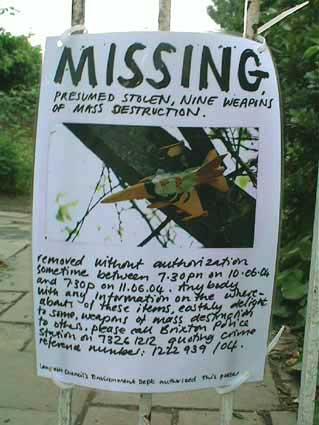 MISSING
PRESUMED STOLEN, NINE WEAPONS
OF MASS DESTRUCTION.
removed without authorization
sometime between 7.30pm on 10.06.04
and 730p on 11.06.04. Anybody
with any information on the where-
abouts of these items, eastly delight
to some, weapons of mass destruction
to others, please call Brixton Police
Station on 7326 1212 quoting crime
reference number: 1222 939 /04.
Council's Environment Dept. authorised this poster